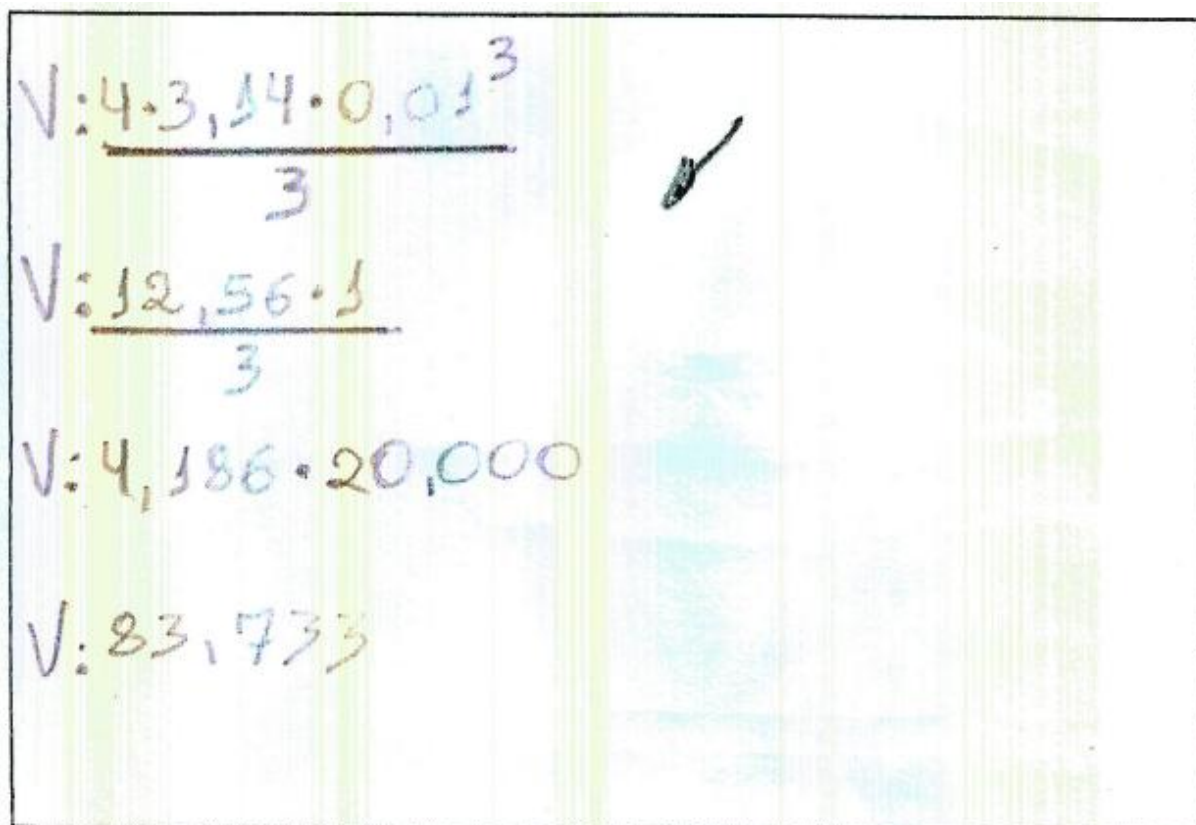 V: 4·3,14·0,01³
3
V: 12,56·1
3
V: 4,186·20,000
V: 83,733